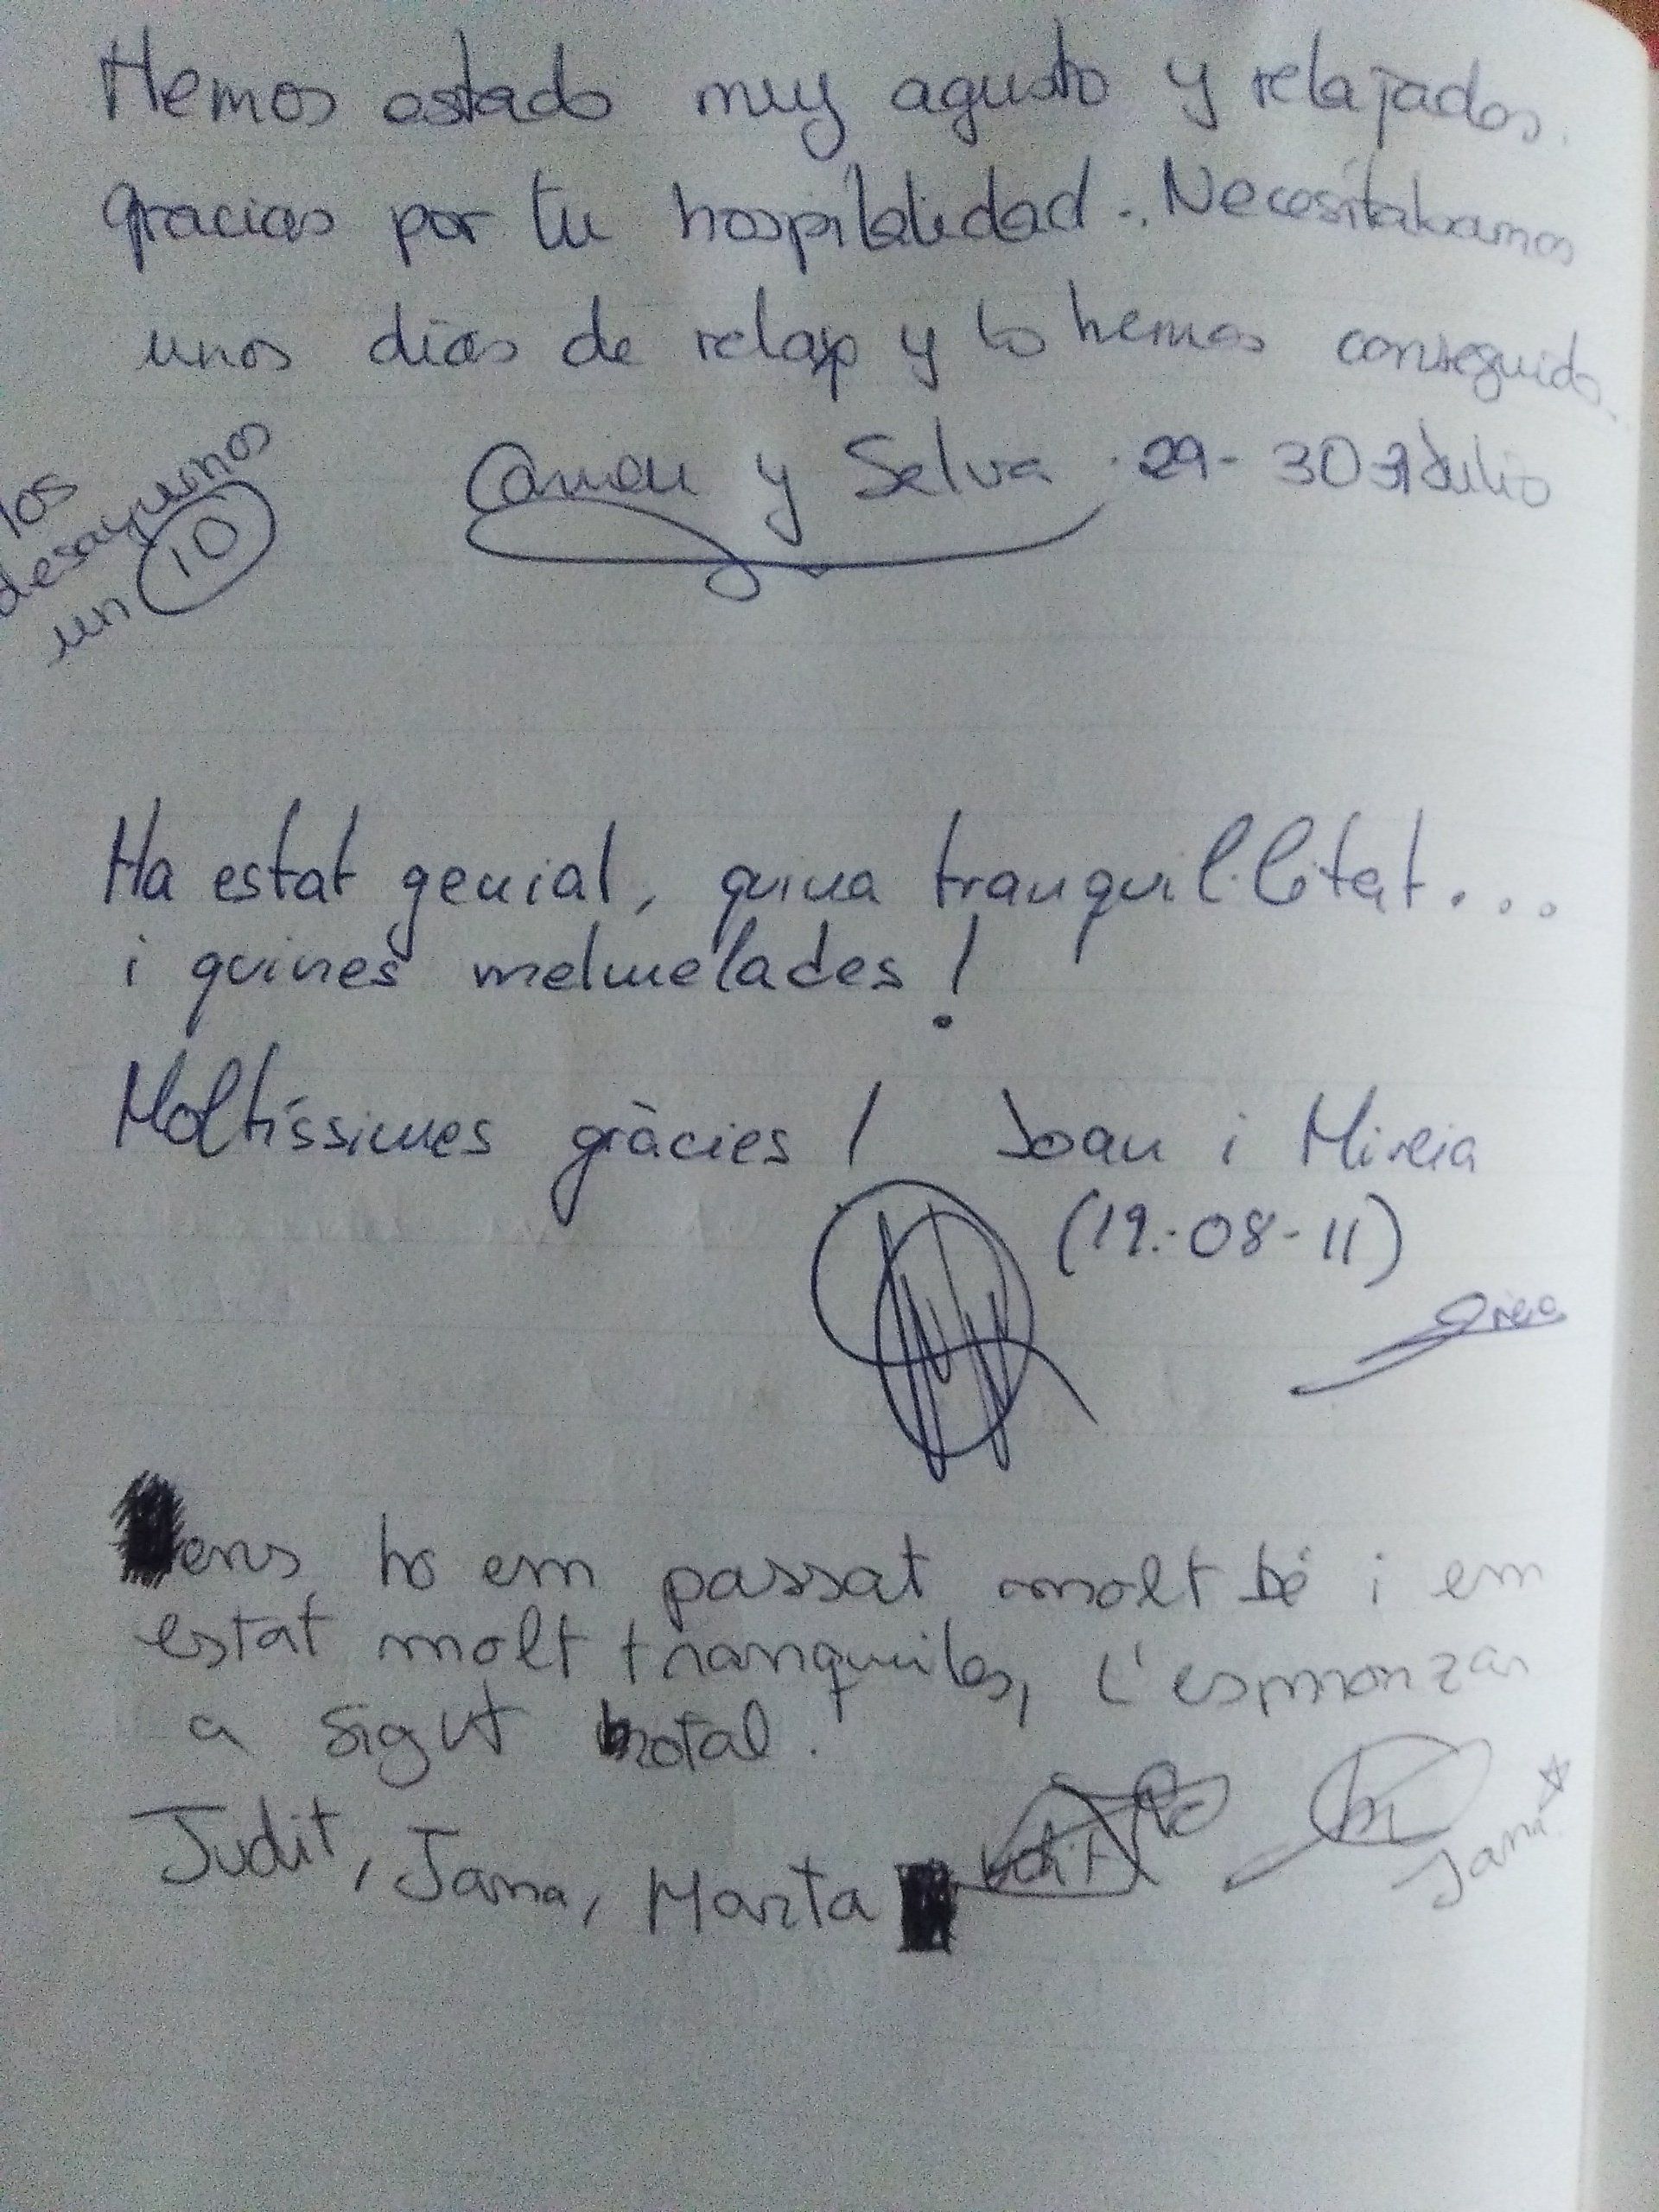 Hemos estado muy agusto y relajados.
gracias por tu hospitalidad. Necesitabamos
unos dias de relax y lo hemos conseguido.
Carmen y Selva 29-30 31 Julio
los
desayunos
un 10
Ha estat genial, quina tranquil·litat...
i quines melmelades!
Moltíssimes gràcies! Joan i Mireia
(19-08-11)
ens ho em passat molt bé i em
estat molt tranquiles, l'esmorzar
a sigut brotal.
Judit, Jana, Marta
Jana